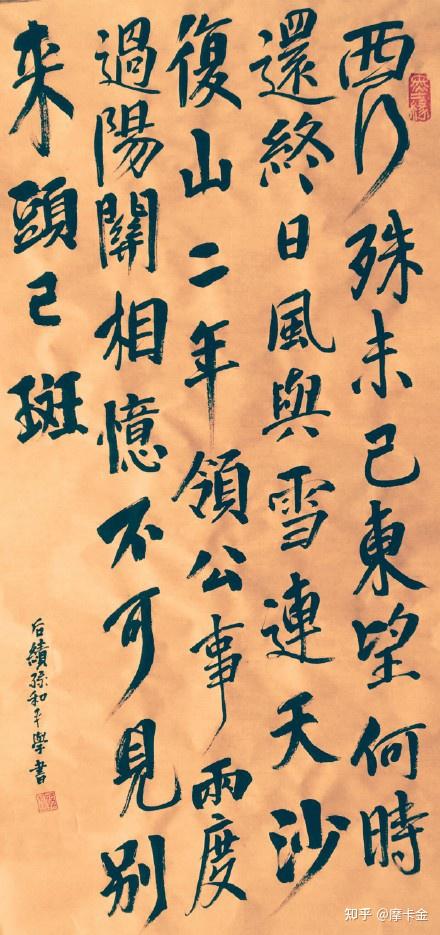 西行殊未已東望何時
還終日風與雪連天沙
復山二年領公事兩度
過陽關相憶不可見別
来頭已斑
后績孫和平學書
知乎 @摩卡金